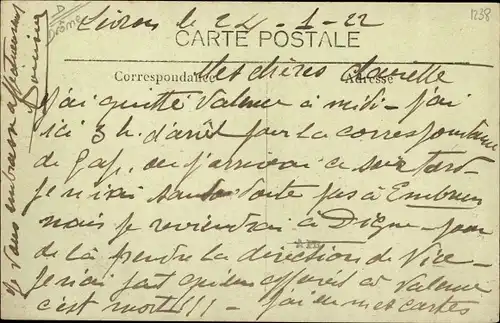 Livron le 24-1-22
1238
Drôme
CARTE POSTALE
Correspondance
Adresse
Mes chères
J'ai quitté Valence à midi - j'ai
ici 3 h. d'arrêt pour la correspondance
de Gap, où j'arriverai ce soir tard -
Je n'irai sans doute pas à Embrun
mais je reviendrai à Digne - pour
de là prendre la direction de Nice -
Je n'ai fait qu'un à Valence
c'est mort!!! - J'ai eu mes cartes
Je vous embrasse affectueusement